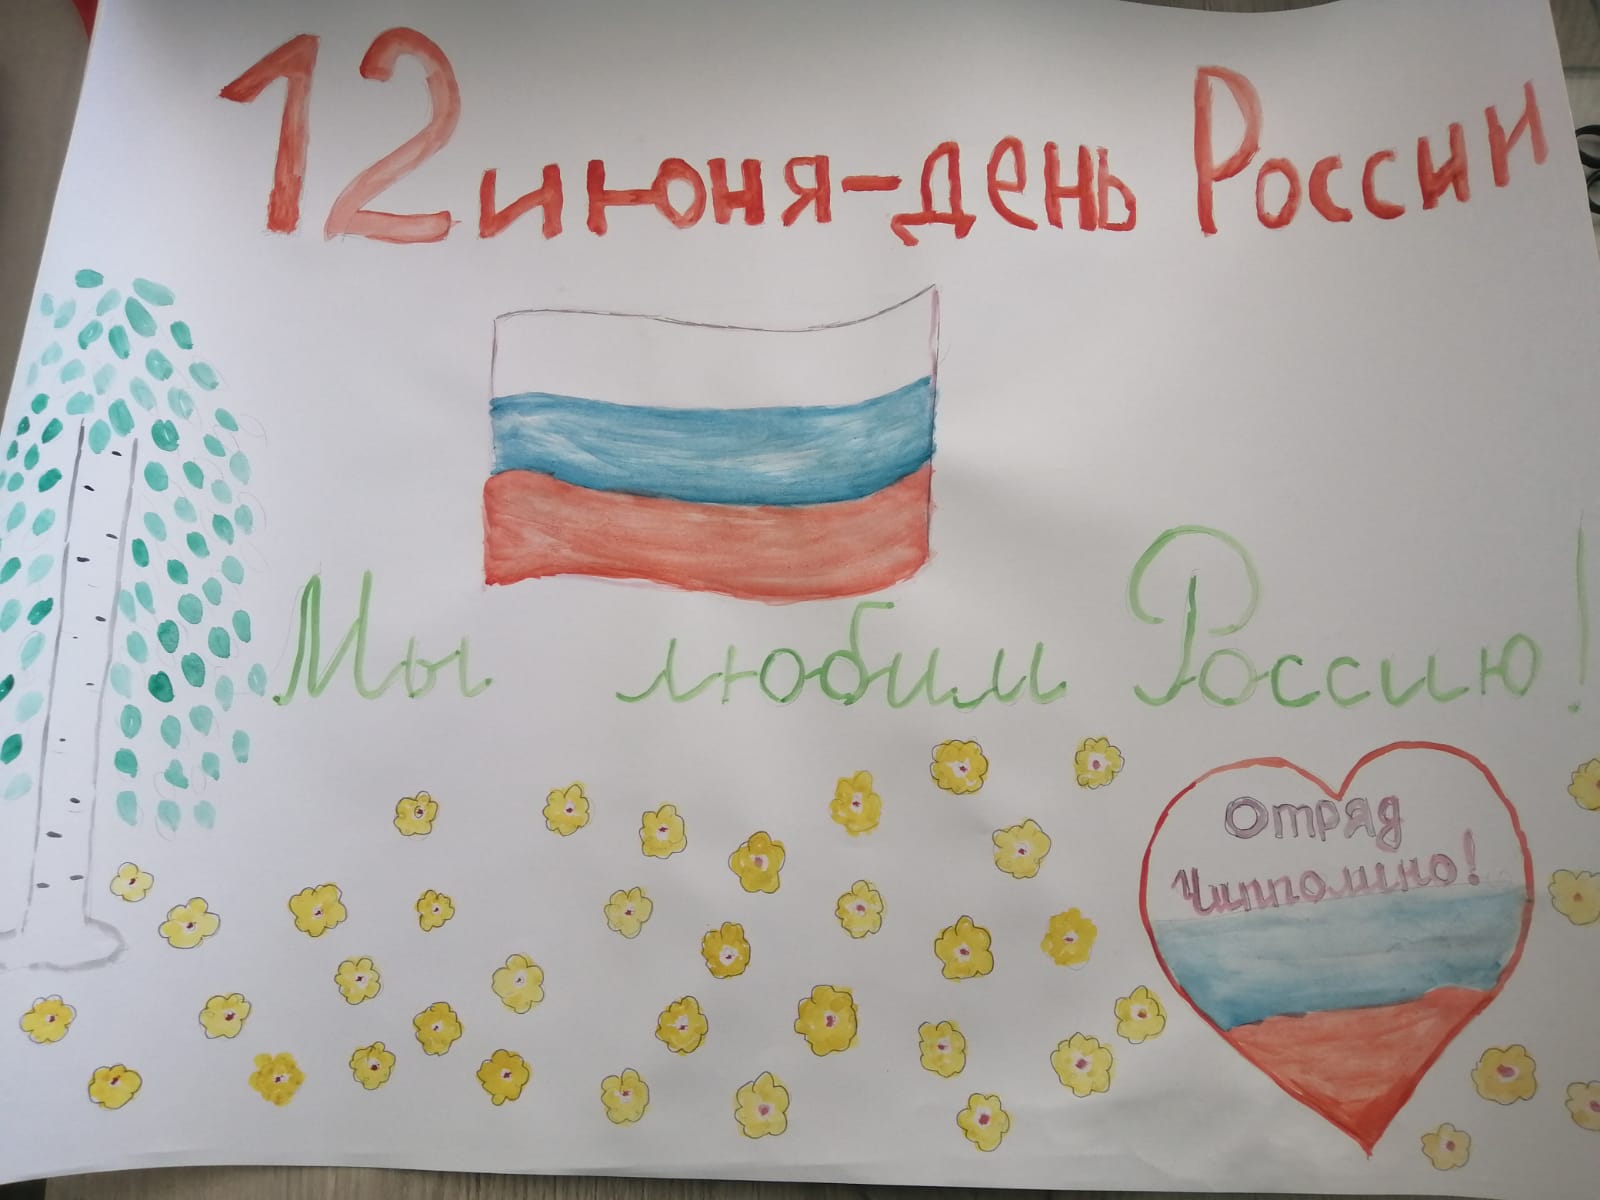 12 июня-день России
Мы любим Россию!
Отряд
Чипполино!